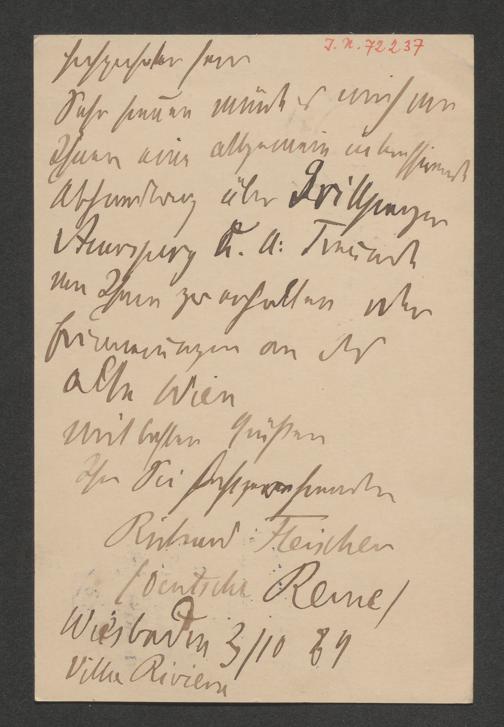 J. N. 72237
Hochgeehrter Herr
Sehr freuen würde es mich von
Ihnen eine allgemein interessirende
Abhandlung über Grillparzer
Auersperg u. a: Freunde
von Ihnen zu erhalten oder
Erinnerungen an das
alte Wien
Mit besten Grüßen
Ihr Sie hochverehrender
Richard Fleischer
(Deutsche Revue)
Wiesbaden 3/10 89
Villa Riviera